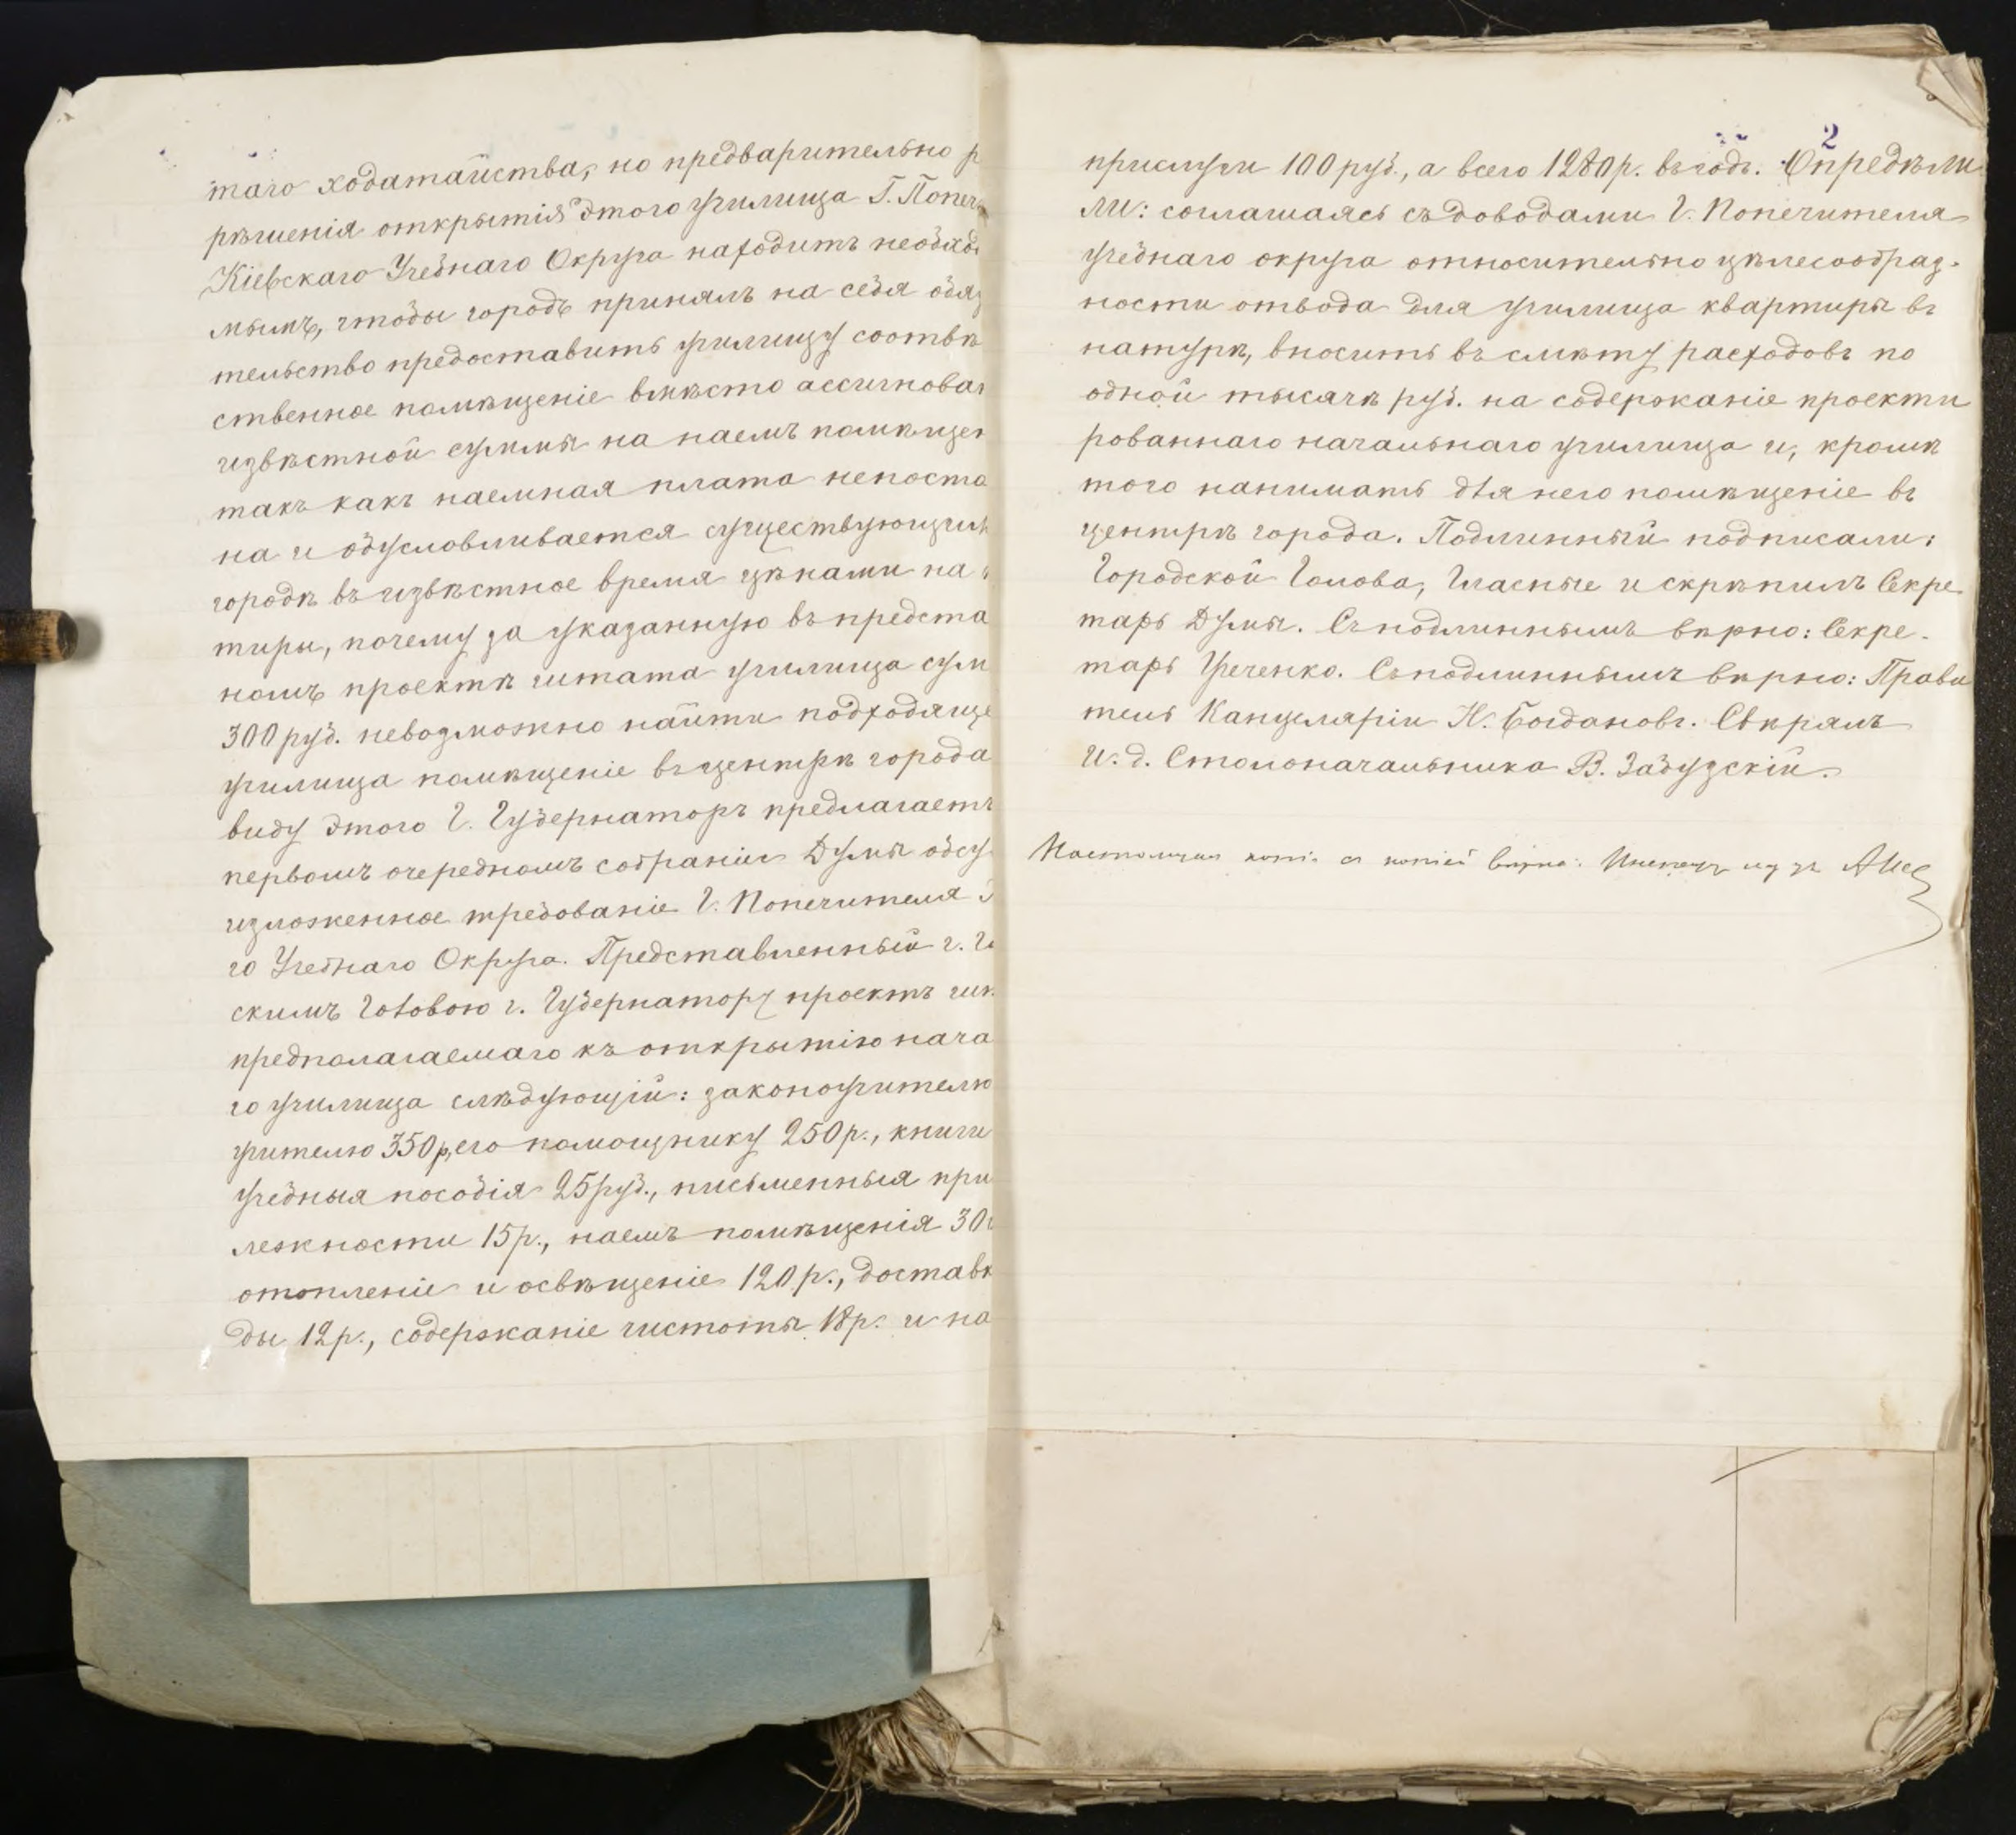 таго ходатайства, но предварительно р
рѣшенія открытія этого училища Г. Попеч
Кіевскаго Учебнаго Округа находитъ необход
мымъ, чтобы городъ принялъ на себя обяз
тельство предоставить училищу соотвѣ
ственное помѣщеніе вмѣсто ассигнован
извѣстной суммы на наемъ помѣщен
такъ какъ наемная плата непостоя
на и обусловливается существующими
городѣ въ извѣстное время цѣнами на
тиры, почему за указанную въ предста
номъ проектѣ штата училища сум
300 руб. невозможно найти подходяще
училища помѣщеніе въ центрѣ города
виду этого Г. Губернаторъ предлагаетъ
первомъ очередномъ собраніи Думы обсу
изложенное требованіе Г. Попечителя
го Учебнаго Округа. Представленный г. Го
скимъ Головою г. Губернатору проектъ шт
предполагаемаго къ открытію нача
го училища слѣдующій: законоучителю
учителю 350 р, его помощнику 250 р., книги
учебныя пособія 25 руб., письменныя при
лежности 15 р., наемъ помѣщенія 30
отопленіе и освѣщеніе 120 р., доставк
ды 12 р., содержаніе чистоты 18 р. и на
2
прислуги 100 руб., а всего 1280 р. въ годъ. Опредѣли
ли: соглашаясь съ доводами Г. Попечителя
учебнаго округа относительно цѣлесообраз-
ности отвода для училища квартиры въ
натурѣ, вносить въ смѣту расходовъ по
одной тысячѣ руб. на содержаніе проекти
рованнаго начальнаго училища и, кромѣ
того нанимать для него помѣщеніе въ
центрѣ города. Подлинный подписали:
Городской Голова, Гласные и скрѣпилъ Секре
тарь Думы. Съ подлиннымъ вѣрно: Секре-
тарь Греченко. Съ подлиннымъ вѣрно: Прави
тель Канцеляріи Н. Богдановъ. Свѣрялъ
И. д. Столоначальника В. Забузскій.
Настоящая копія съ копіей вѣрна: